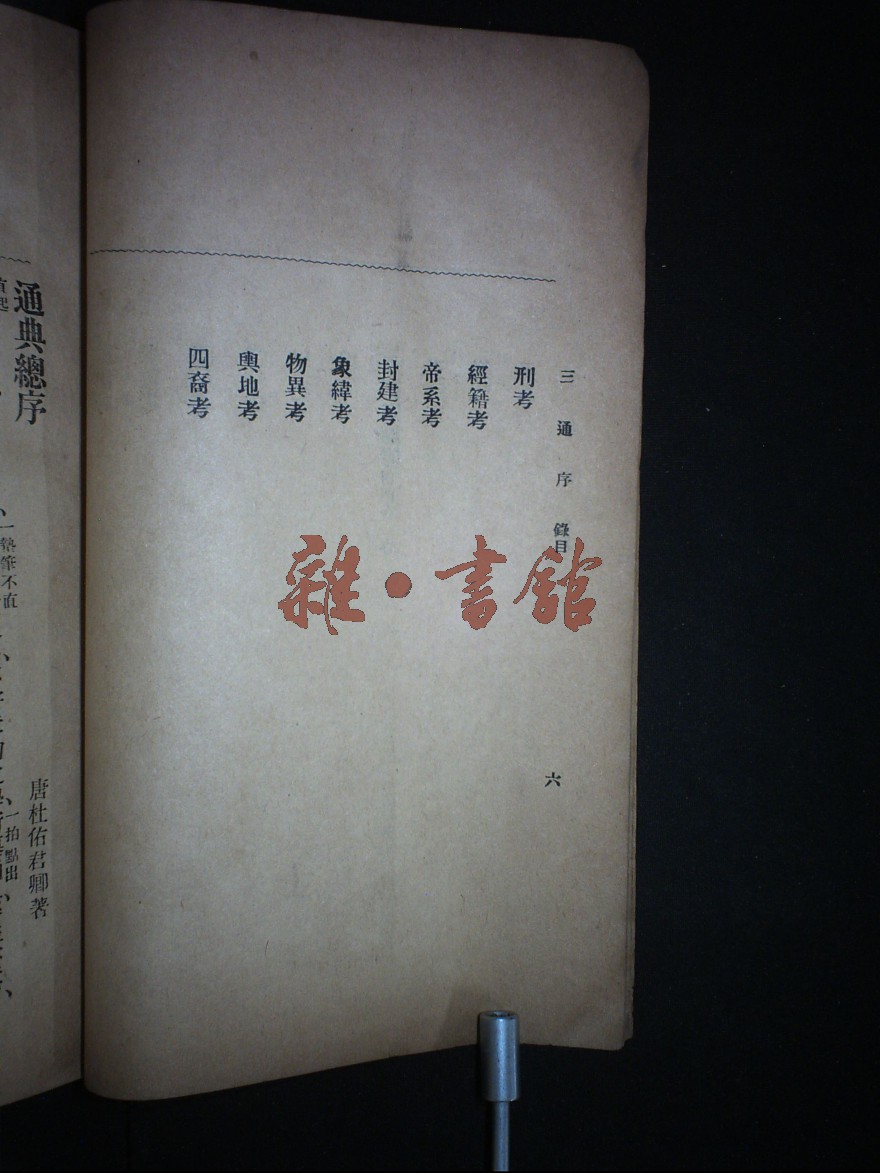 三通序 錄目 六
刑考
經籍考
帝系考
封建考
象緯考
物異考
輿地考
四裔考
雜·書館
通典總序
唐杜佑君卿著
執筆不直
一拍點出